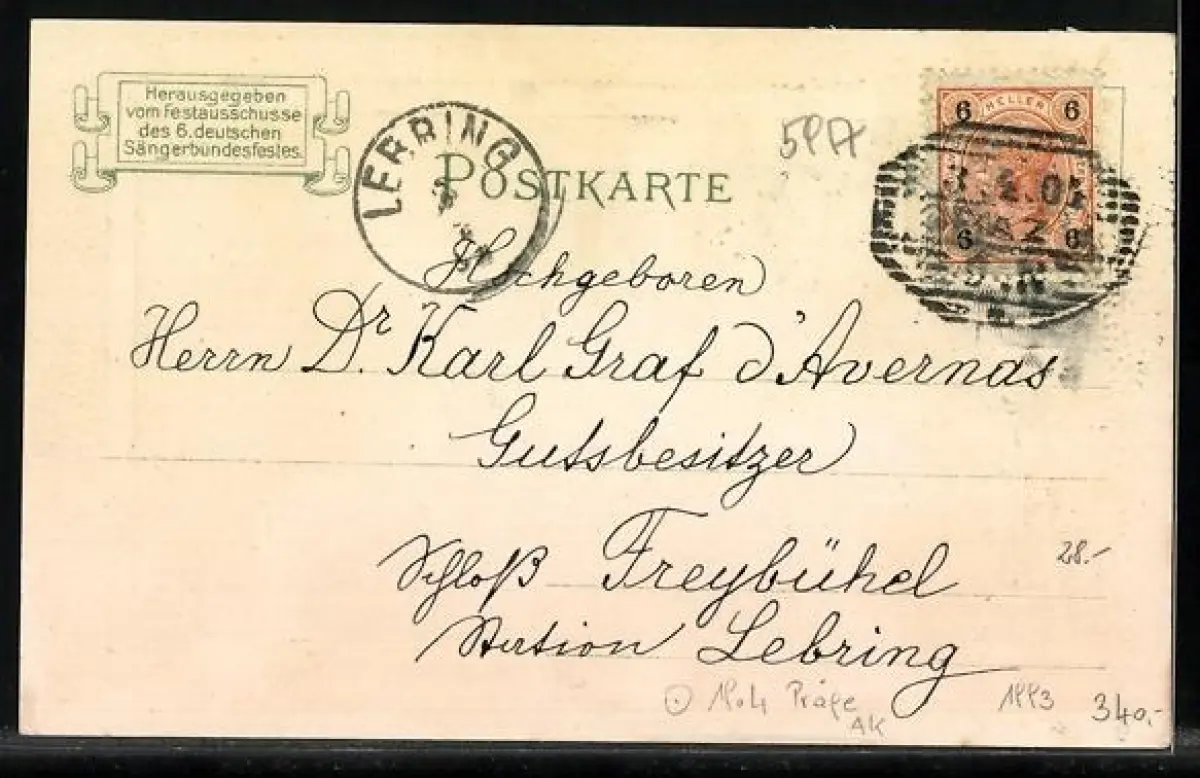 Herausgegeben
vom Festausschusse
des 6. deutschen
Sängerbundesfestes.
LEBRING
POSTKARTE
6 HELLER 6
6 6
Hochgeboren
Herrn Dr. Karl Graf d'Avernas
Gutsbesitzer
Schloß Freybühel
Station Lebring
28.-
Präge
AK
340,-